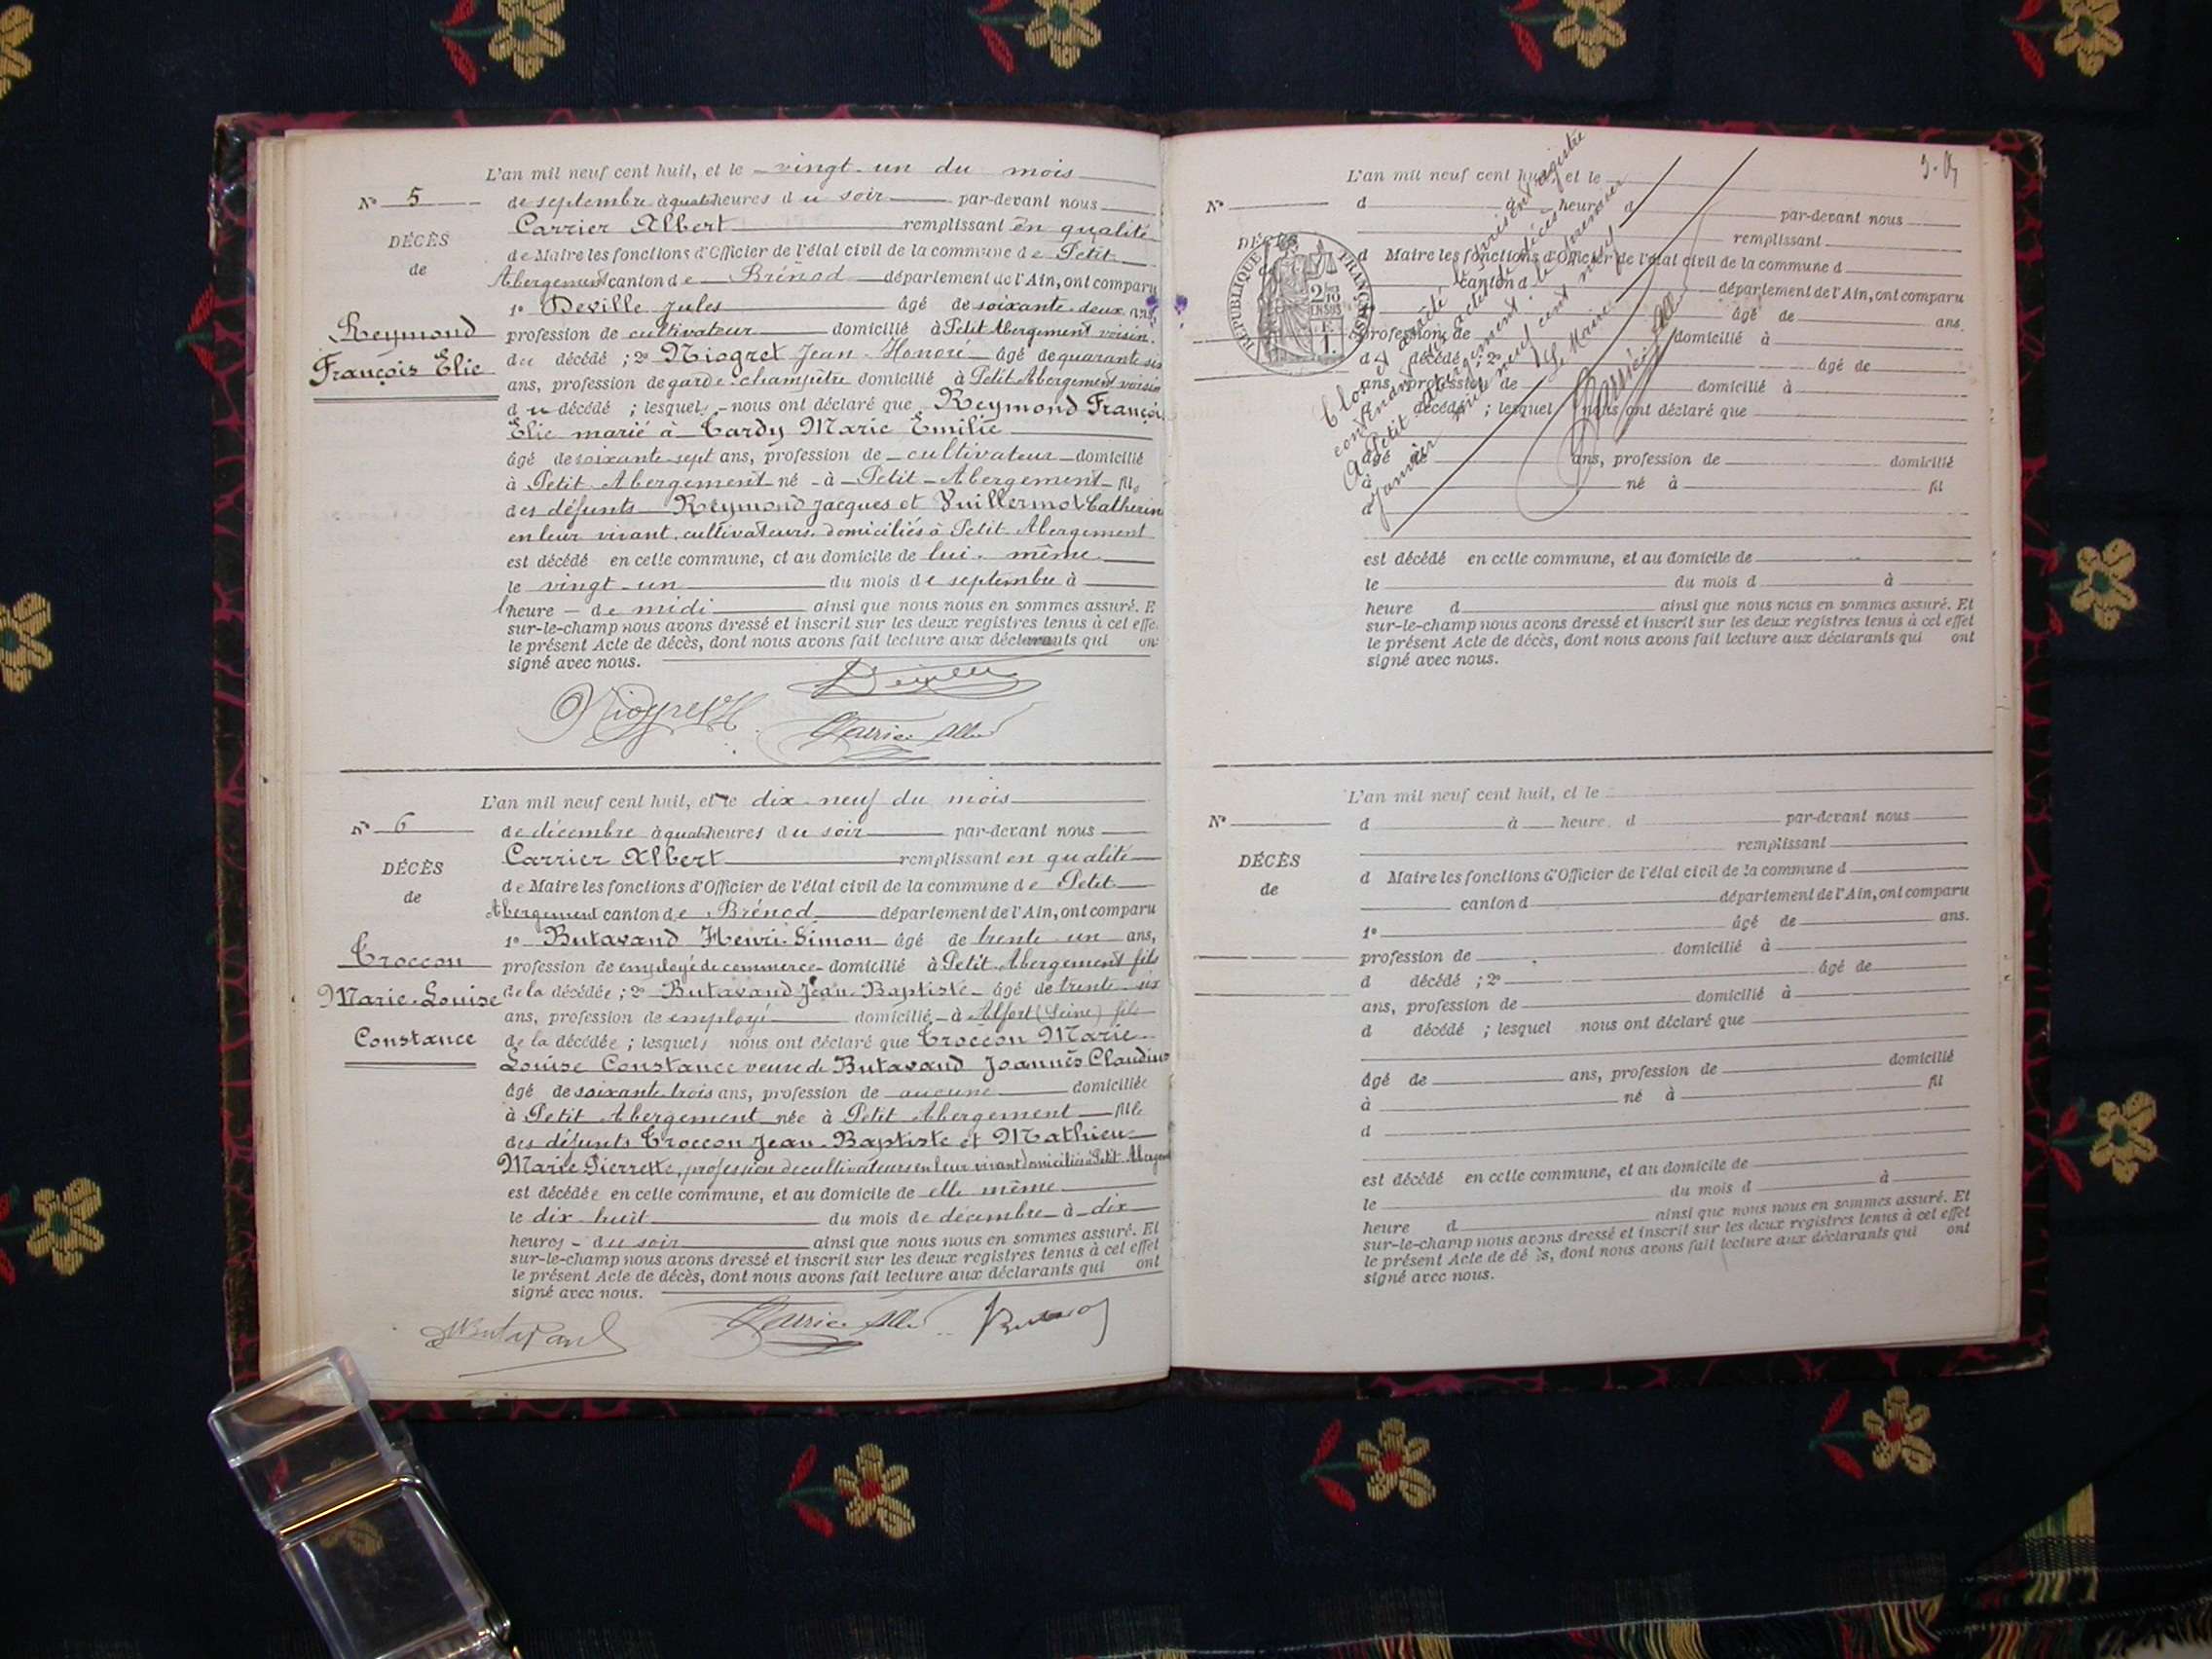 L'an mil neuf cent huit, et le vingt-un du mois
N° 5 de septembre à quatre heures du soir par-devant nous
Carrier Albert remplissant en qualité
DÉCÈS
de Maire les fonctions d'Officier de l'état civil de la commune de Petit
de
Abergement canton de Brénod département de l'Ain, ont comparu
1° Deville Jules âgé de soixante-deux ans
Reymond
profession de cultivateur domicilié à Petit Abergement voisin
François Elie
du décédé ; 2° Niogret Jean-Honoré âgé de quarante six
ans, profession de garde-champêtre domicilié à Petit Abergement voisin
du décédé ; lesquels nous ont déclaré que Reymond François
Elie marié à Tardy Marie Emilie
âgé de soixante-sept ans, profession de cultivateur domicilié
à Petit Abergement né à Petit-Abergement fils
des défunts Reymond Jacques et Vuillermoz Catherine
en leur vivant cultivateurs domiciliés à Petit Abergement
est décédé en cette commune, et au domicile de lui-même
le vingt-un du mois de septembre à
heure de midi ainsi que nous nous en sommes assuré. E
sur-le-champ nous avons dressé et inscrit sur les deux registres tenus à cet effe
le présent Acte de décès, dont nous avons fait lecture aux déclarants qui on
signé avec nous.
Deville
Niogret H
Carrier Albert
L'an mil neuf cent huit, et le dix-neuf du mois
N° 6 de décembre à quatre heures du soir par-devant nous
Carrier Albert remplissant en qualité
DÉCÈS
de Maire les fonctions d'Officier de l'état civil de la commune de Petit
de
Abergement canton de Brénod département de l'Ain, ont comparu
1° Butavand Henri-Simon âgé de trente-un ans,
Troccon
profession de employé de commerce domicilié à Petit Abergement fils
Marie-Louise
de la décédée ; 2° Butavand Jean-Baptiste âgé de trente-six
ans, profession de employé domicilié à Alfort (Seine) fils
Constance
de la décédée ; lesquels nous ont déclaré que Troccon Marie
Louise Constance veuve de Butavand Joannès Claudius
âgé de soixante-trois ans, profession de aucune domiciliée
à Petit Abergement née à Petit Abergement fille
des défunts Troccon Jean-Baptiste et Mathieu
Marie Pierrette, profession de cultivateurs en leur vivant domiciliés à Petit Abergement
est décédée en cette commune, et au domicile de elle même
le dix-huit du mois de décembre à dix
heures du soir ainsi que nous nous en sommes assuré. Et
sur-le-champ nous avons dressé et inscrit sur les deux registres tenus à cet effet
le présent Acte de décès, dont nous avons fait lecture aux déclarants qui ont
signé avec nous.
Butavand Carrier Albert
L'an mil neuf cent huit, et le
N° d à heure d par-devant nous
remplissant
DÉCÈS
d Maire les fonctions d'Officier de l'état civil de la commune d
canton d département de l'Ain, ont comparu
âgé de ans.
profession de domicilié à
d décédé ; 2° âgé de
ans, profession de domicilié à
décédé ; lesquel nous ont déclaré que
âgé de ans, profession de domicilié
à né à fil
d
est décédé en cette commune, et au domicile de
le du mois d à
heure d ainsi que nous nous en sommes assuré. Et
sur-le-champ nous avons dressé et inscrit sur les deux registres tenus à cet effet
le présent Acte de décès, dont nous avons fait lecture aux déclarants qui ont
signé avec nous.
RÉPUBLIQUE FRANÇAISE
2/10
EN SUS
Clos et arrêté le présent registre
contenant six actes de décès
A Petit Abergement le premier
janvier mil neuf cent neuf
Le Maire
Carrier Alb
L'an mil neuf cent huit, et le
N° d à heure d par-devant nous
remplissant
DÉCÈS
d Maire les fonctions d'Officier de l'état civil de la commune d
de
canton d département de l'Ain, ont comparu
1° âgé de ans.
profession de domicilié à
d décédé ; 2° âgé de
ans, profession de domicilié à
d décédé ; lesquel nous ont déclaré que
âgé de ans, profession de domicilié
à né à fil
d
est décédé en cette commune, et au domicile de
le du mois d à
heure d ainsi que nous nous en sommes assuré. Et
sur-le-champ nous avons dressé et inscrit sur les deux registres tenus à cet effet
le présent Acte de dé ès, dont nous avons fait lecture aux déclarants qui ont
signé avec nous.